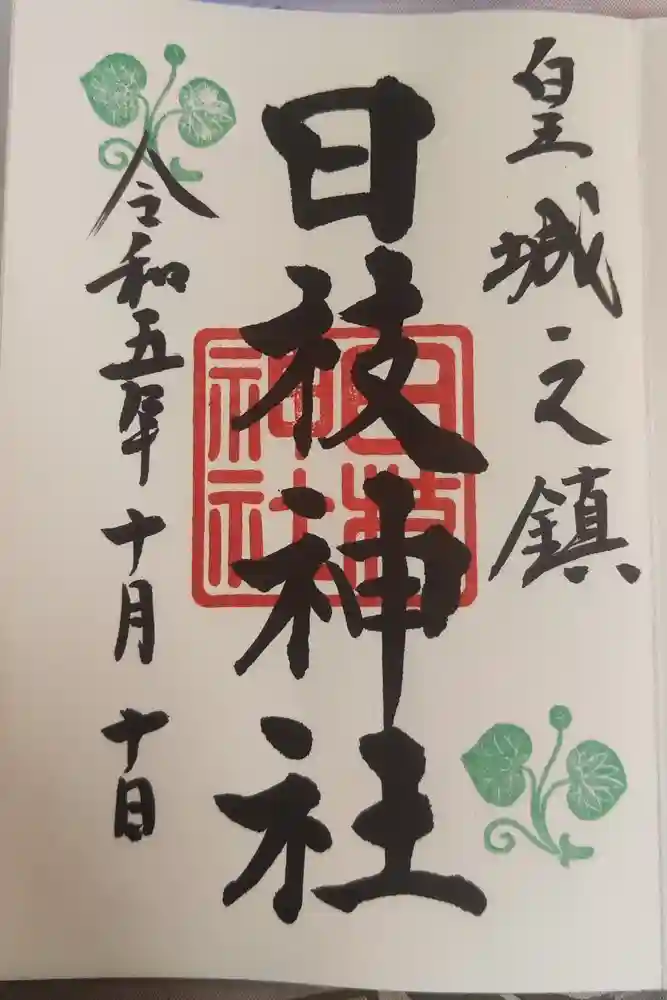 皇城之鎮
日枝神社
日枝神社
令和五年十月十日